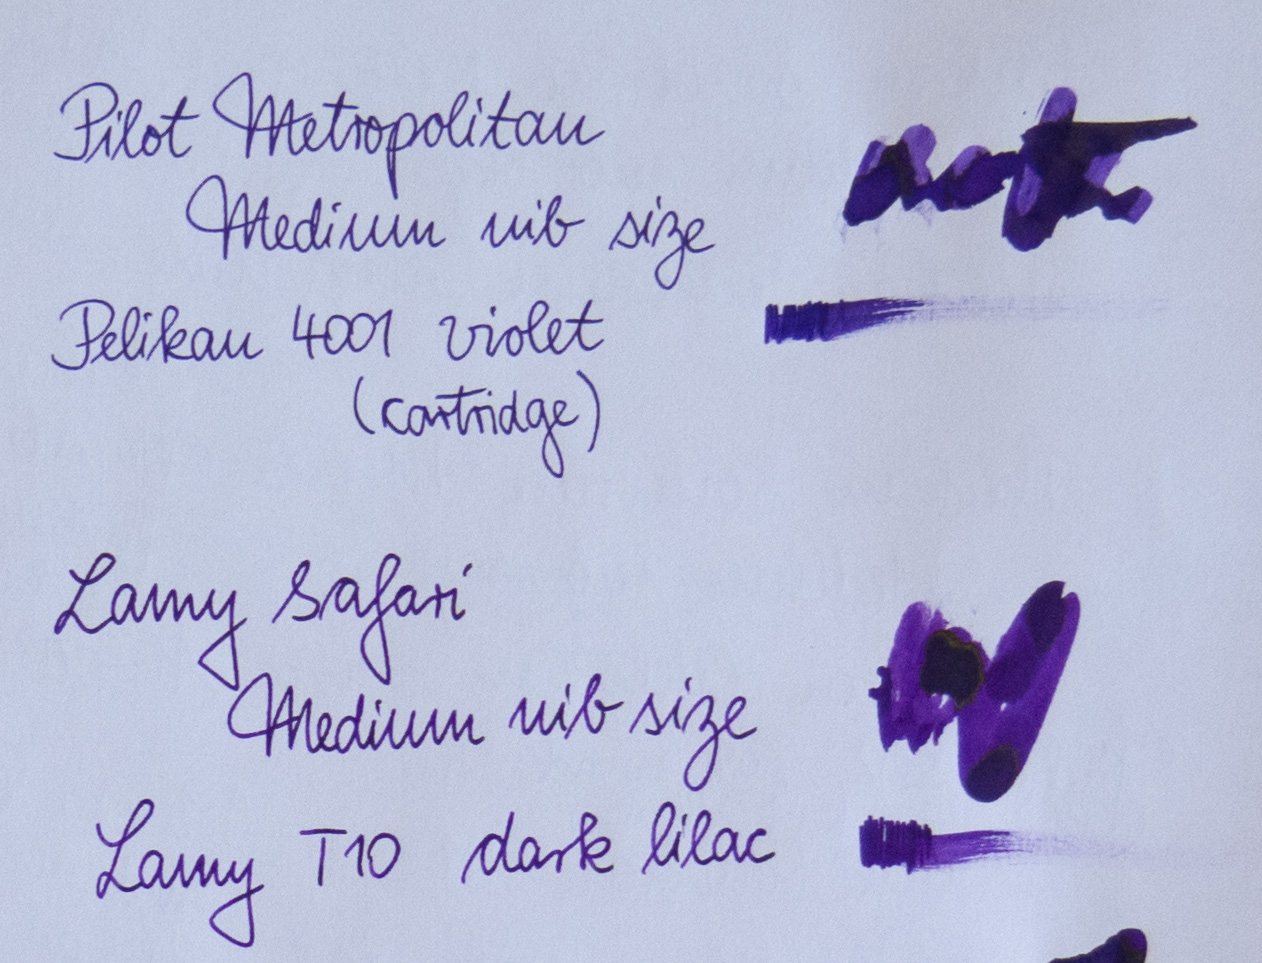 Pilot Metropolitan
Medium nib size
Pelikan 4001 violet
(cartridge)
Lamy Safari
Medium nib size
Lamy T10 dark lilac